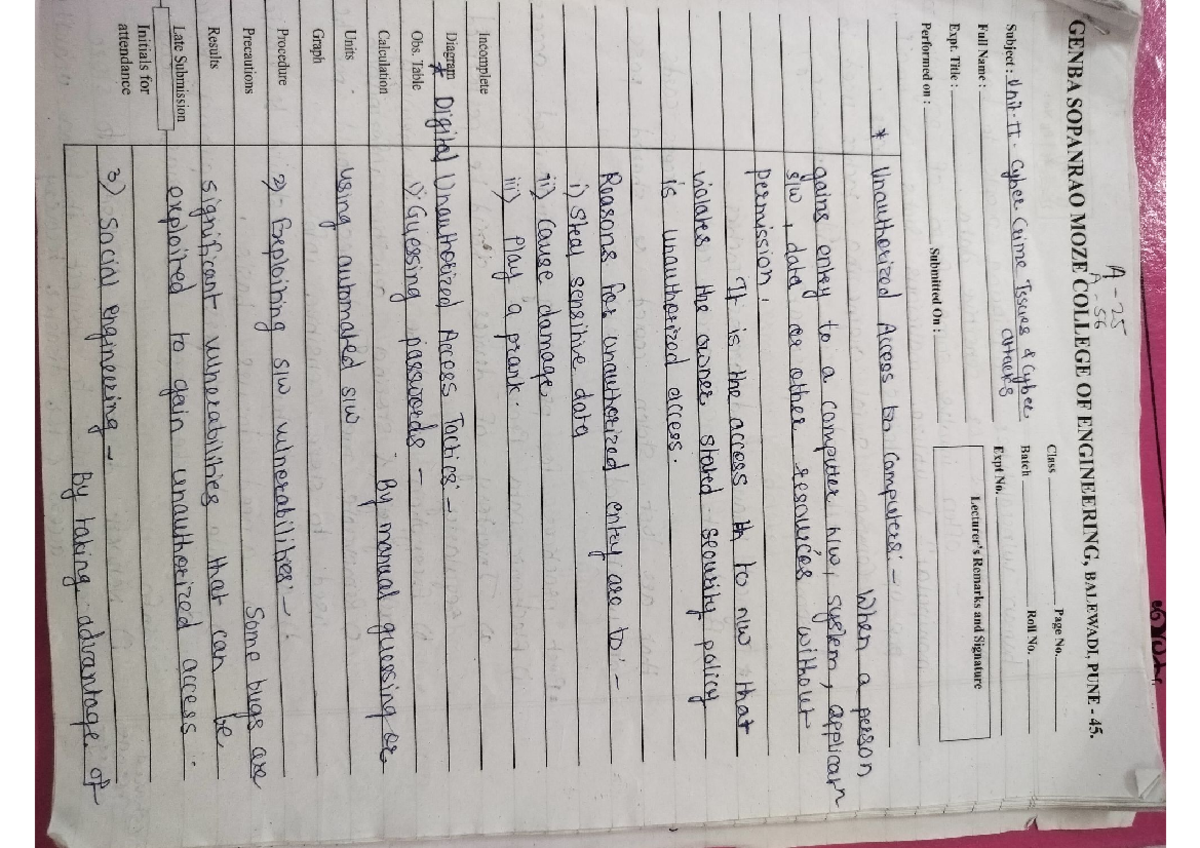 A-25
A-56
GENBA SOPANRAO MOZE COLLEGE OF ENGINEERING, BALEWADI, PUNE - 45.
Subject : Unit-II - Cyber Crime Issues & Cyber attacks
Class Page No.
Full Name :
Batch Roll No.
Expt. Title :
Expt No.
Performed on : Submitted On :
Lecturer's Remarks and Signature
* Unauthorized Access to Computers:-
When a person
gains entry to a computer h/w, system, applicatn
s/w, data or other resources without
permission.
It is the access th to n/w that
violates the owner stated security policy
is unauthorized access.
Reasons for unauthorized entry are to:-
i) Steal sensitive data
ii) cause damage
iii) Play a prank.
Incomplete
Diagram * Digital Unauthorized Access Tactics:-
Obs. Table 1) Guessing passwords -
Calculation By manual guessing or
Units using automated s/w
Graph
Procedure 2) - Exploiting s/w vulnerabilites:-
Precautions Some bugs are
Results significant vulnerabilities that can be
Late Submission exploited to gain unauthorized access.
Initials for
attendance
3) Social engineering -
By taking advantage of